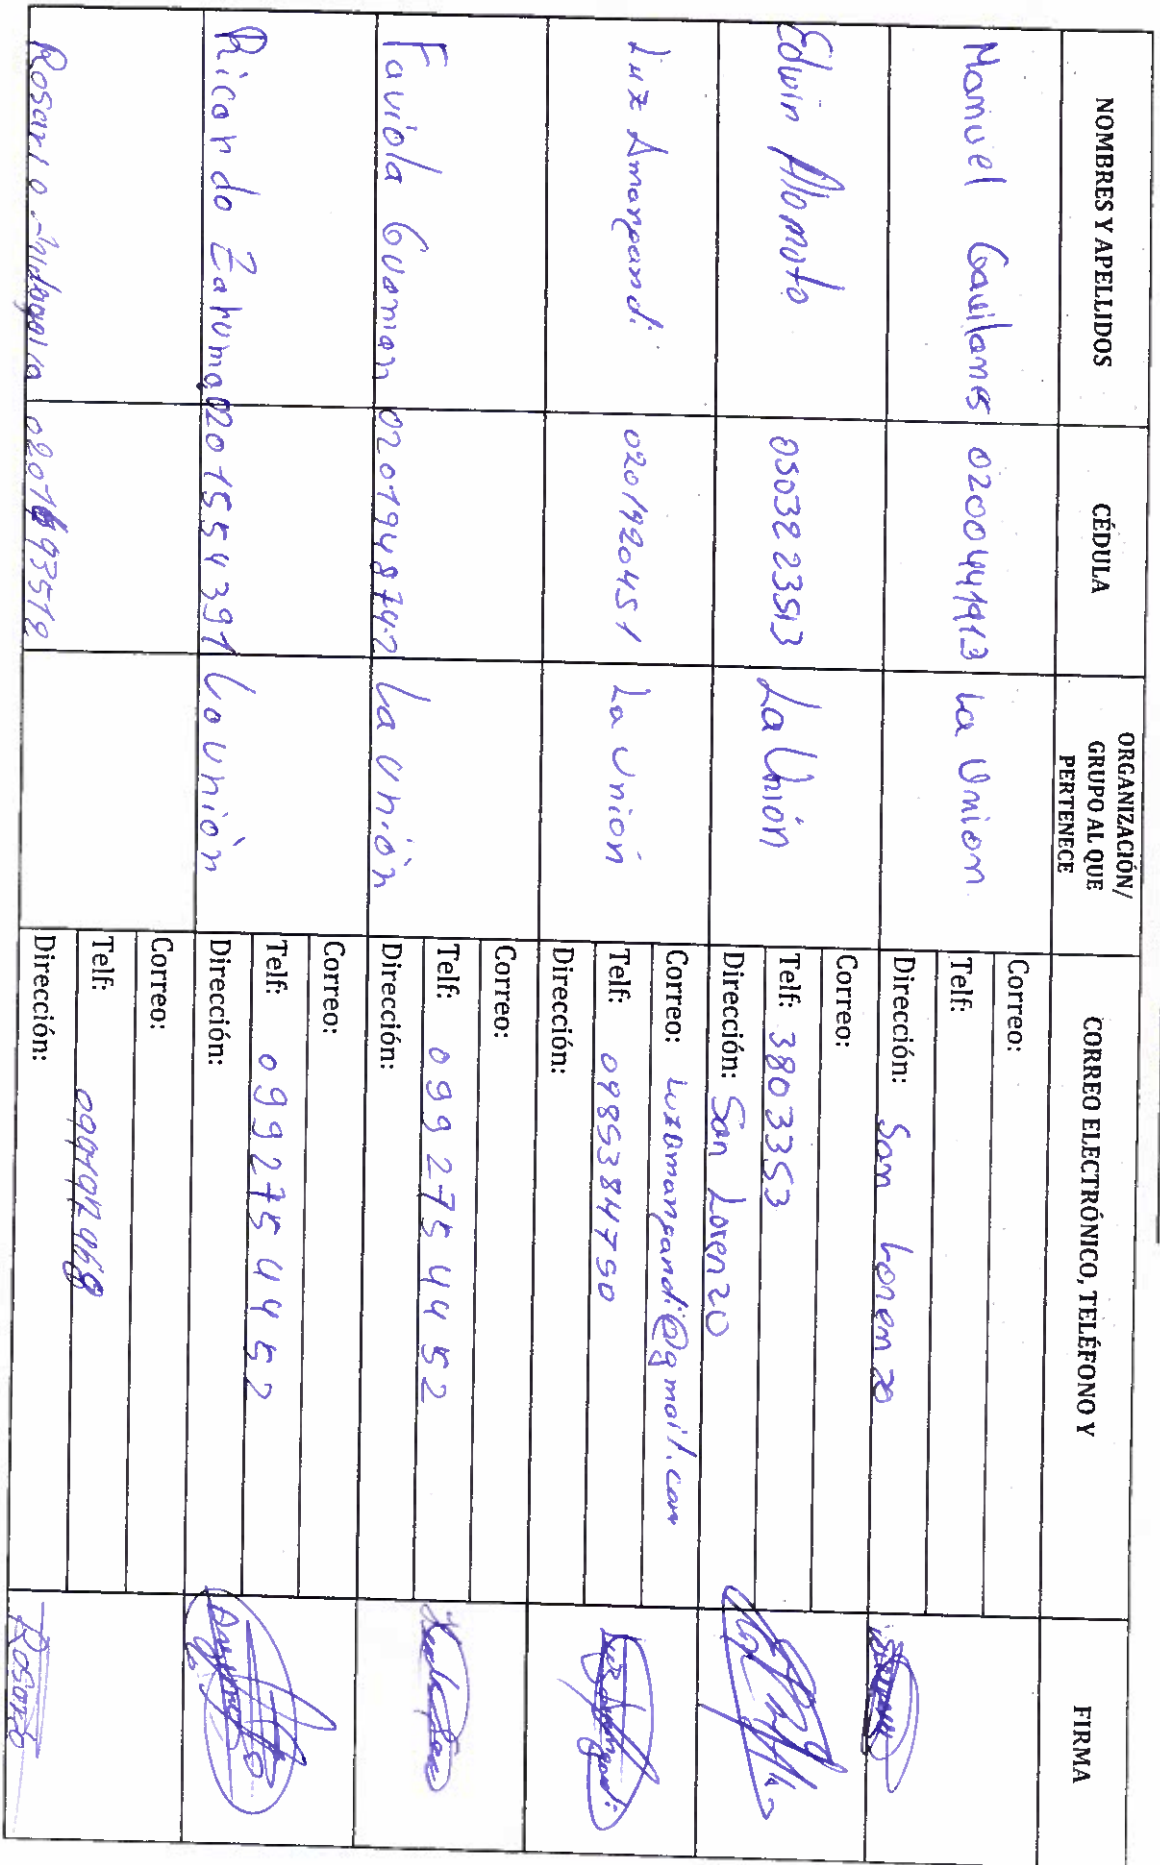 NOMBRES Y APELLIDOS
CÉDULA
ORGANIZACIÓN/
GRUPO AL QUE
PERTENECE
CORREO ELECTRÓNICO, TELÉFONO Y
FIRMA
Manuel Gavilanes
0200441913
La Union
Correo:
Telf:
Dirección: San Lorenzo
Edwin Alomoto
0503223513
La Unión
Correo:
Telf: 3803353
Dirección: San Lorenzo
Luz Amangandi
0201920451
La Unión
Correo: luzamangandi@gmail.com
Telf: 0985384750
Dirección:
Faviola Guaman
0201948742
La Unión
Correo:
Telf: 0992754452
Dirección:
Ricardo Zaruma
0201554391
La Unión
Correo:
Telf: 0992754452
Dirección:
Rosario
Correo:
Telf:
Dirección:
Rosario